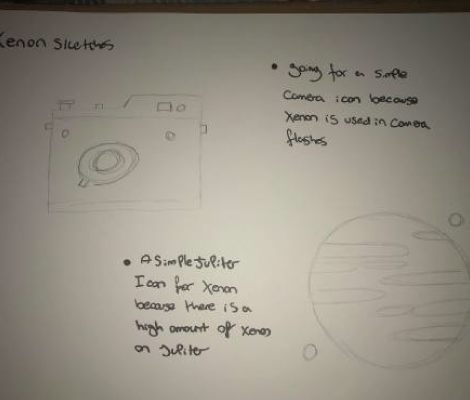 Xenon Sketches
• going for a simple
Camera icon because
Xenon is used in Camera
flashes
• A Simple Jupiter
Icon for Xenon
because there is a
high amount of Xenon
on Jupiter